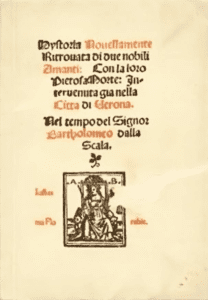 Hystoria Nouellamente
Ritrouata di due nobili
Amanti: Con la loro
Pietosa Morte: In
teruenuta gia nella
Citta di Uerona.
Nel tempo del Signor
Bartholomeo dalla
Scala.
A B